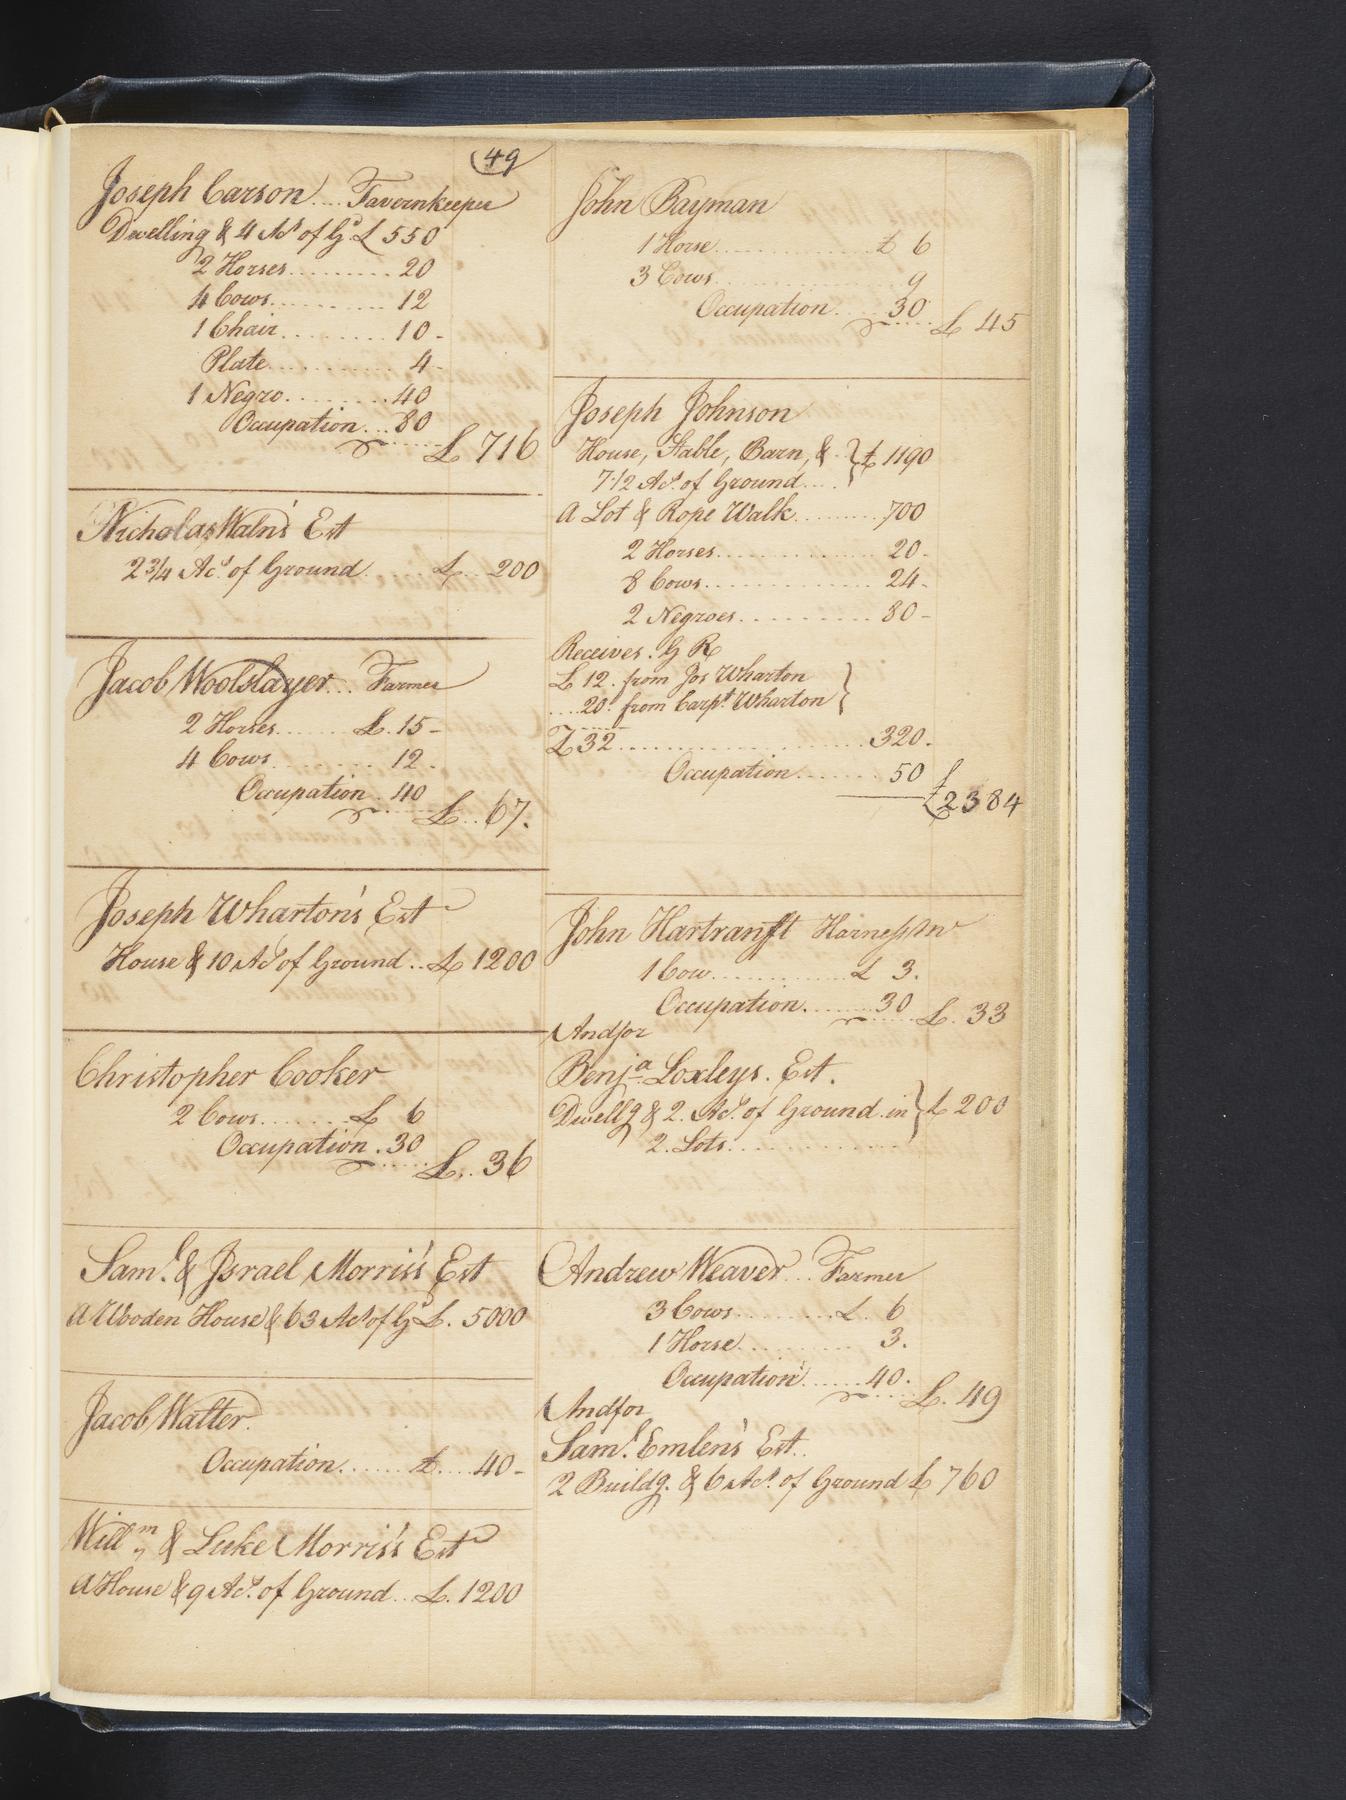 49
Joseph Carson .... Tavernkeeper
Dwelling & 4 Acs of Gd £ 550
2 Horses ......... 20
4 Cows ............ 12
1 Chair .......... 10 -
Plate ............ 4 -
1 Negro ......... 40
Occupation ... 80
£ 716
Nicholas Waln's Est
2 3/4 Acs. of Ground £ 200
Jacob Woolslayer ... Farmer
2 Horses ....... £. 15 -
4 Cows .......... 12 .
Occupation . 40
£ .. 67.
Joseph Wharton's Est
House & 10 Acs of Ground .. £ 1200
Christopher Cooker
2 Cows ....... £ 6
Occupation . 30
£ .. 36
Saml. & Israel Morris's Est
A Wooden House & 63 Acs of Gd £. 5000
Jacob Walter
Occupation ...... £ .... 40 -
Willm & Luke Morris's Est
A House & 9 Acs. of Ground .. £. 1200
John Bayman
1 Horse ............... £ 6
3 Cows ............... 9
Occupation .... 30
£ 45
Joseph Johnson
House, Stable, Barn, & } £ 1190
7 1/2 Acs. of Ground ....
A Lot & Rope Walk ........ 700
2 Horses ............... 20 -
8 Cows ................ 24 -
2 Negroes ............ 80 -
Receives . G R
£ 12 . from Jos Wharton }
.... 20 . from Carpt. Wharton
£ 32 ....................... 320 .
Occupation ....... 50
£ 2384
John Hartranfft Harness Mr
1 Cow ............. £ 3.
Occupation ....... 30
£. 33
And for
Benja Loxleys . Est .
Dwellg & 2. Acs. of Ground . in } £ 200
2. Lots ..............
Andrew Weaver ... Farmer
3 Cows .......... £. 6
1 Horse ........... 3.
Occupation ...... 40 .
£. 49
And for
Saml. Emlen's Est ..
2 Buildg. & 6 Acs. of Ground £ 760